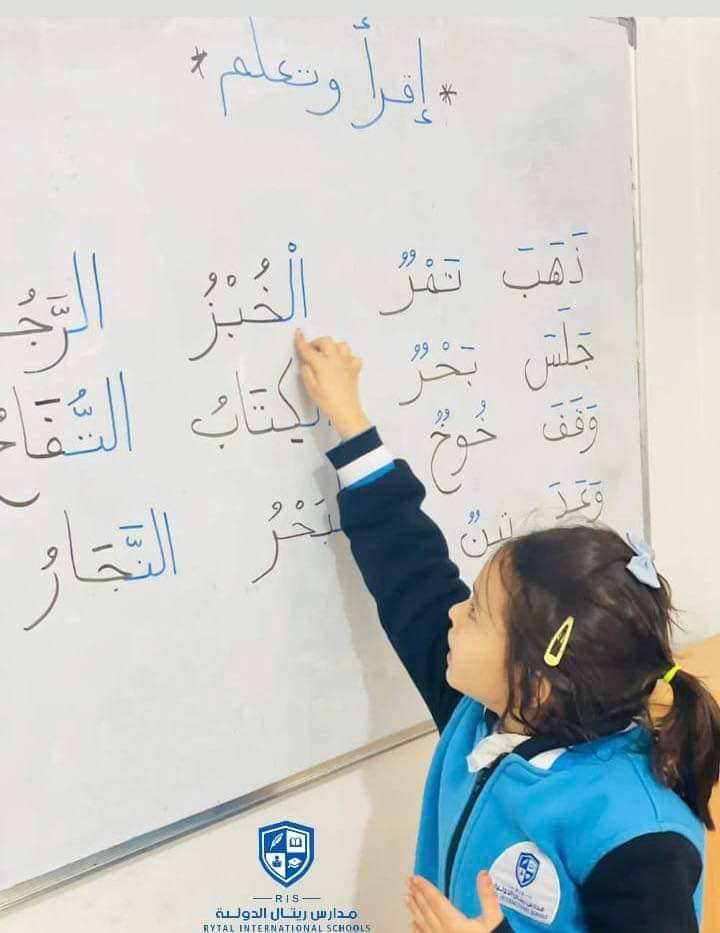 * إقرأ وتعلم *
ذَهَبَ تَمْرٌ الْخُبْزُ الرَّجُـ
جَلَسَ بَحْرٌ الكِتَابُ التُّفَاح
وَقَفَ خُوخٌ
تينٌ البَحْرُ النَّجَارُ
RIS
مدارس ريتال الدولية
RYTAL INTERNATIONAL SCHOOLS